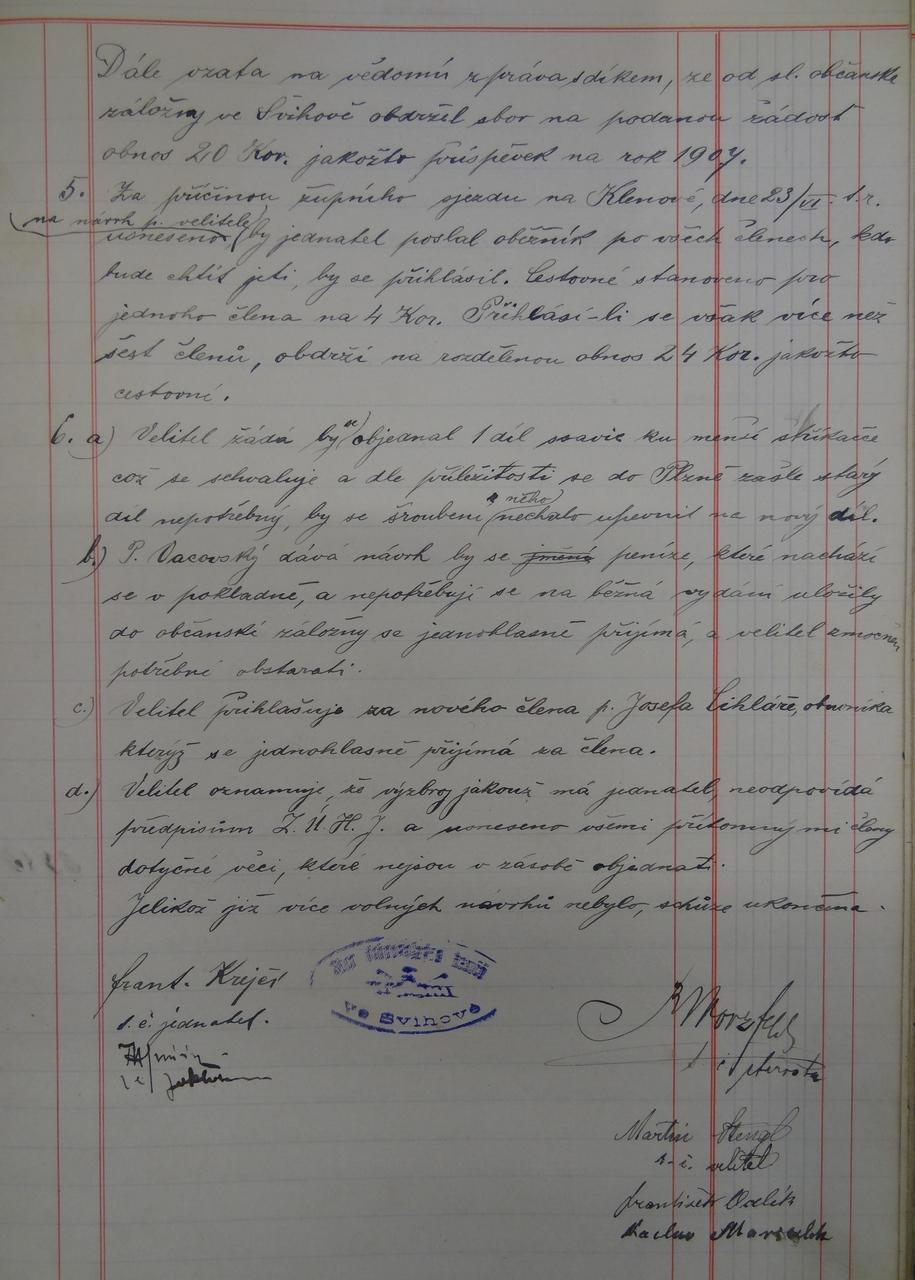 Dále vzata na vědomí zpráva s díkem, že od sl. občanské
záložny ve Švihově obdržel sbor na podanou žádost
obnos 20 Kor. jakožto příspěvek na rok 1907.
5. Za příčinou župního sjezdu na Klenové, dne 23/VI. t. r.
na návrh p. velitele
usneseno by jednatel poslal oběžník po všech členech, kdo
bude chtít jeti, by se přihlásil. Cestovné stanoveno pro
jednoho člena na 4 Kor. Přihlásí-li se však více než
šest členů, obdrží na rozdělenou obnos 24 Kor. jakožto
cestovní.
6. a) Velitel žádá by se objednal 1 díl ssavic ku menší stříkačce
což se schvaluje a dle příležitosti se do Plzně zašle starý
z něho
díl nepotřebný, by se šroubení nechalo upevnit na nový díl.
b.) P. Vacovský dává návrh by se jmění peníze, které nachází
se v pokladně, a nepotřebují se na běžná vydání uložily
do občanské záložny se jednohlasně přijímá, a velitel zmocněn
potřebné obstarati.
c.) Velitel přihlašuje za nového člena p. Josefa Cihláře, obuvníka
kterýž se jednohlasně přijímá za člena.
d.) Velitel oznamuje, že výzbroj jakouž má jednatel, neodpovídá
předpisům Z. Ú. H. J. a usneseno všemi přítomnými členy
dotyčné věci, které nejsou v zásobě objednati.
Jelikož již více volných návrhů nebylo, schůze ukončena.
Frant. Krejčí
t. č. jednatel.
ve Švihově
t. č. starosta
Martin Stengl
t. č. velitel
František Odlík
Václav